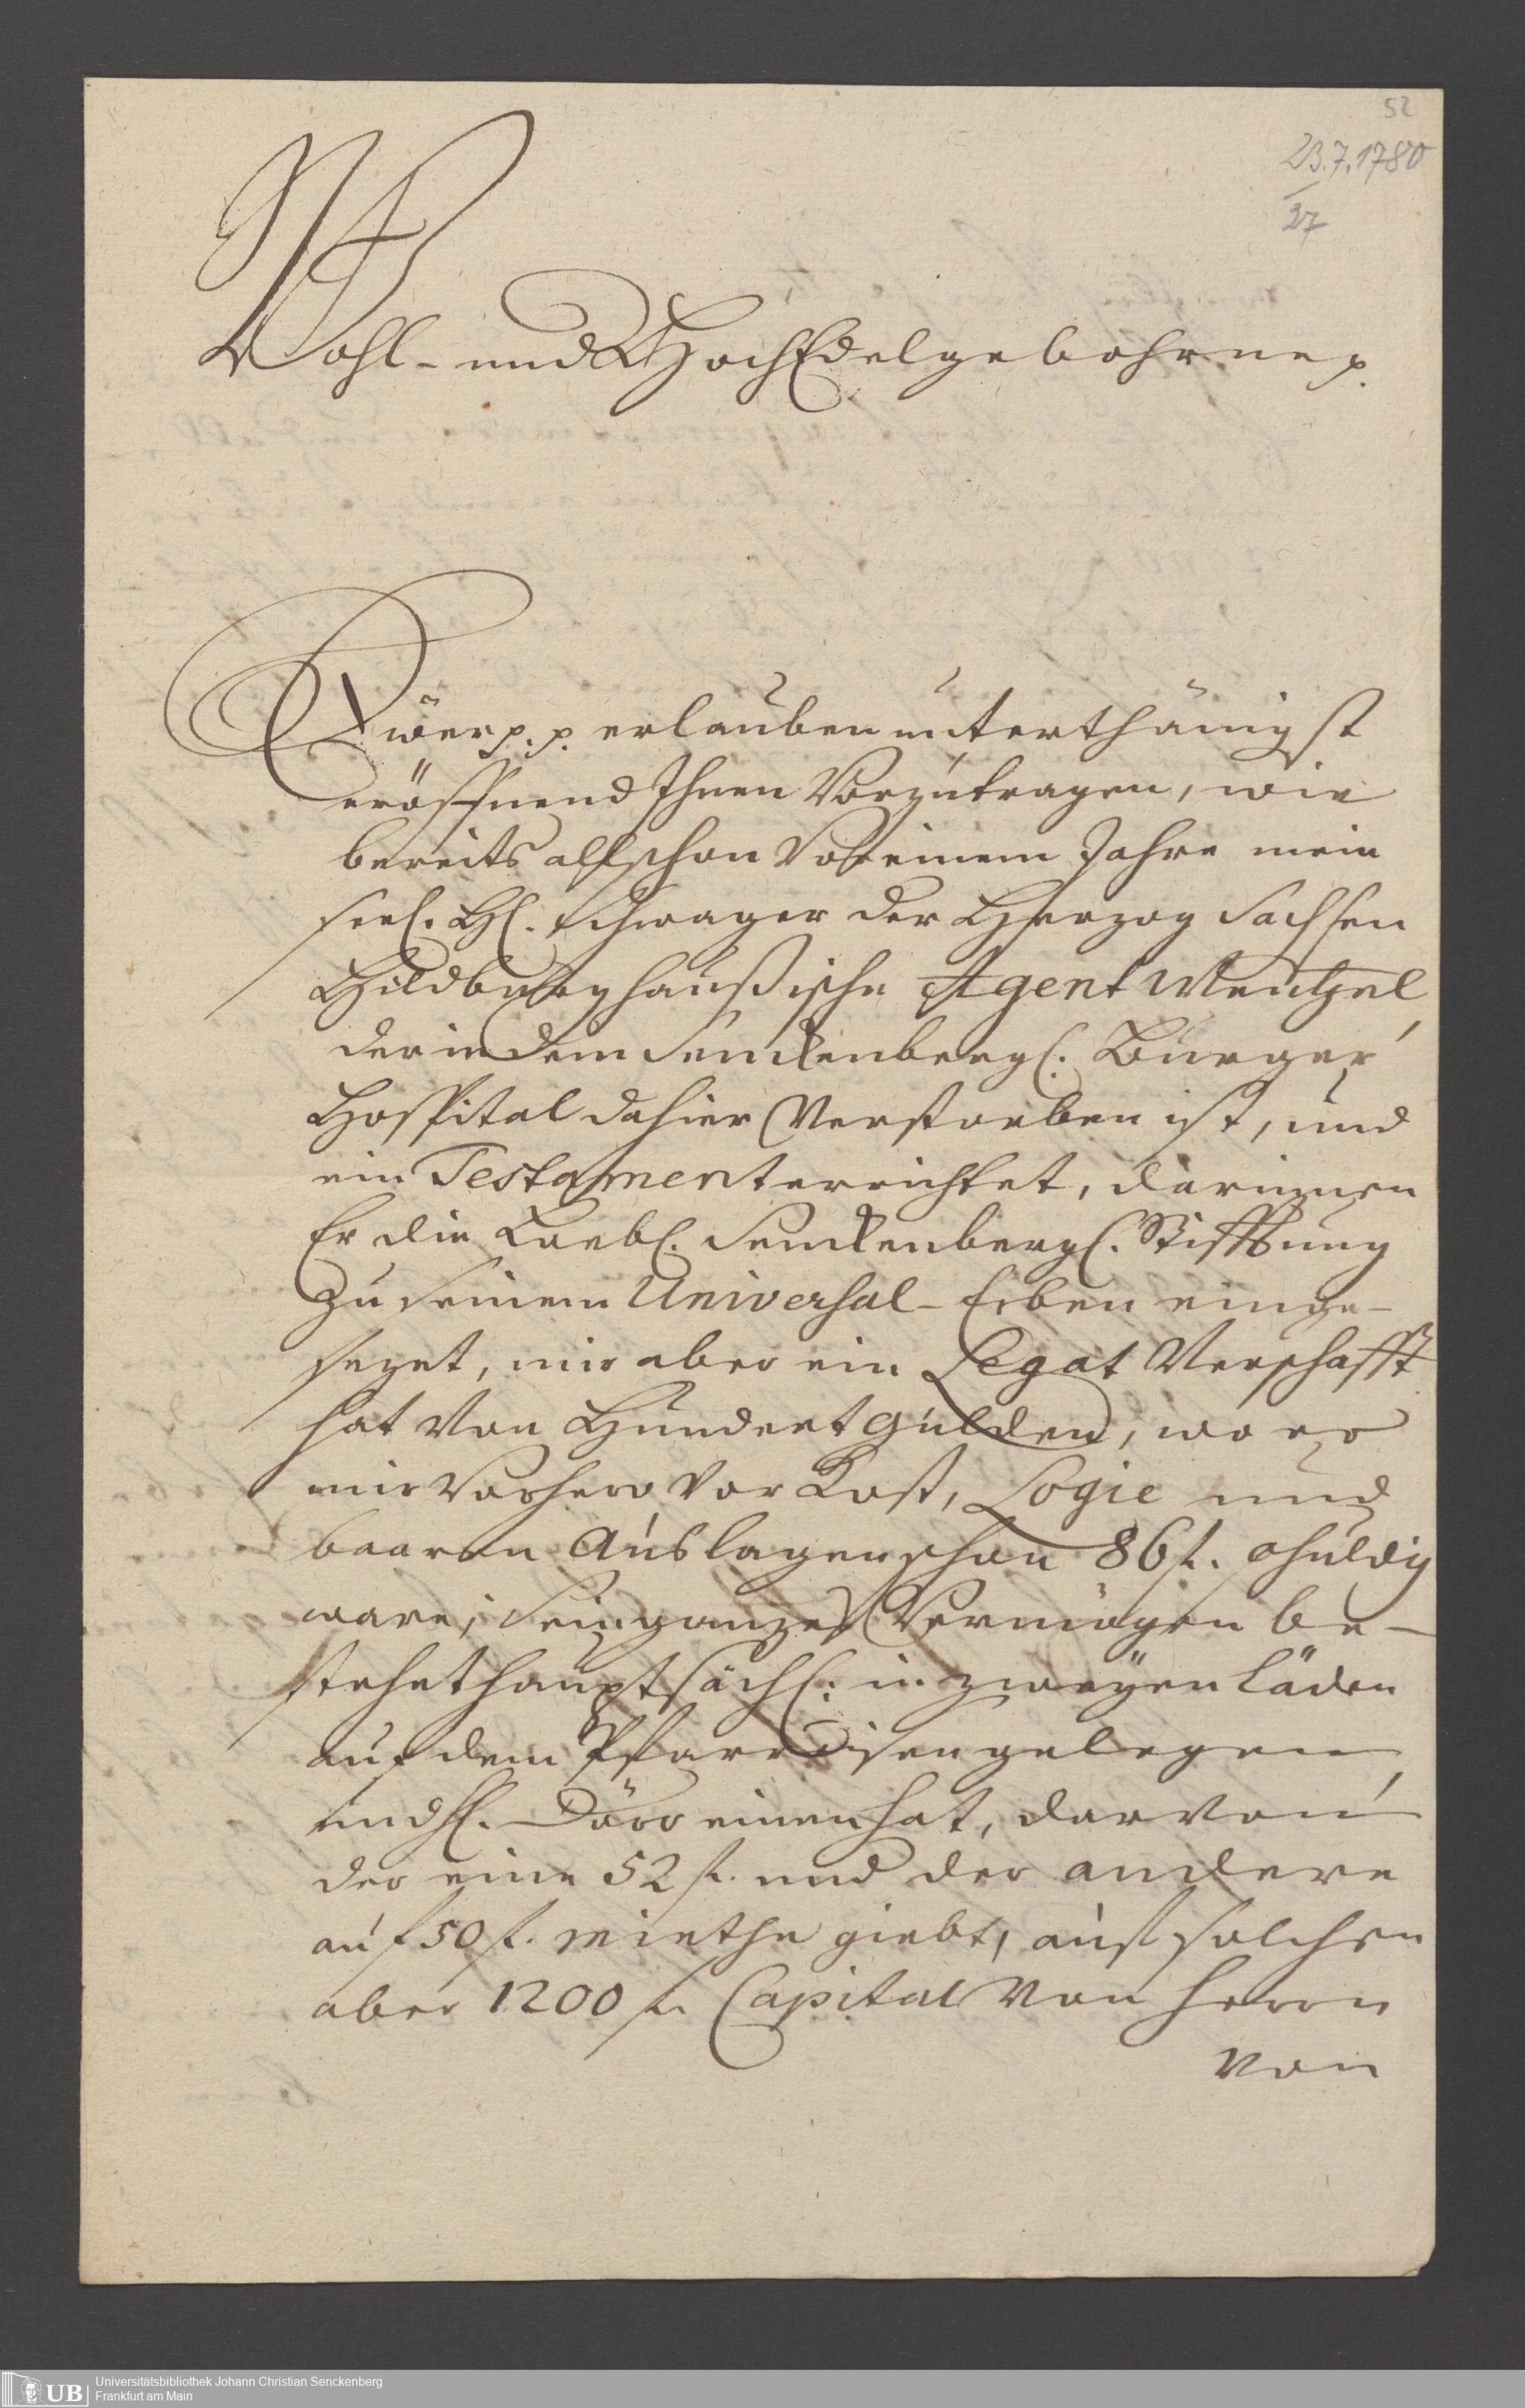 52
23.7.1780
27
Wohl- und HochEdelgebohrne p.
Ewer p. p. erlauben unterthänigst
eröffnend Ihnen Vorzutragen, wie
bereits allschon Vor einem Jahre mein
seel. H. Schwager der Herzog Sachsen
Hildburghaußische Agent Wentzel,
der in dem Senckenbergl. Burger
Hospital dahier Verstorben ist, und
ein Testament errichtet, darinnen
Er die Loebl. Senckenbergl. Stifftung
zu seinem Universal-Erben einge-
sezet, mir aber ein Legat Verschafft
hat Von Hundert Gulden, wo er
mir Vorhero Vor Kost, Logie und
baaren Auslagen schon 86 f. schuldig
ware; Sein ganzes Vermögen be-
stehet hauptsächl: in zweÿen Läden
auf dem Pfarreisen gelegen,
und H. Dörr einen hat, darvon
der eine 52 f. und der andere
auf 50 f. Miethe giebt, auf solchen
aber 1200 f. Capital Von Herrn
Von
UB
Universitätsbibliothek Johann Christian Senckenberg
Frankfurt am Main